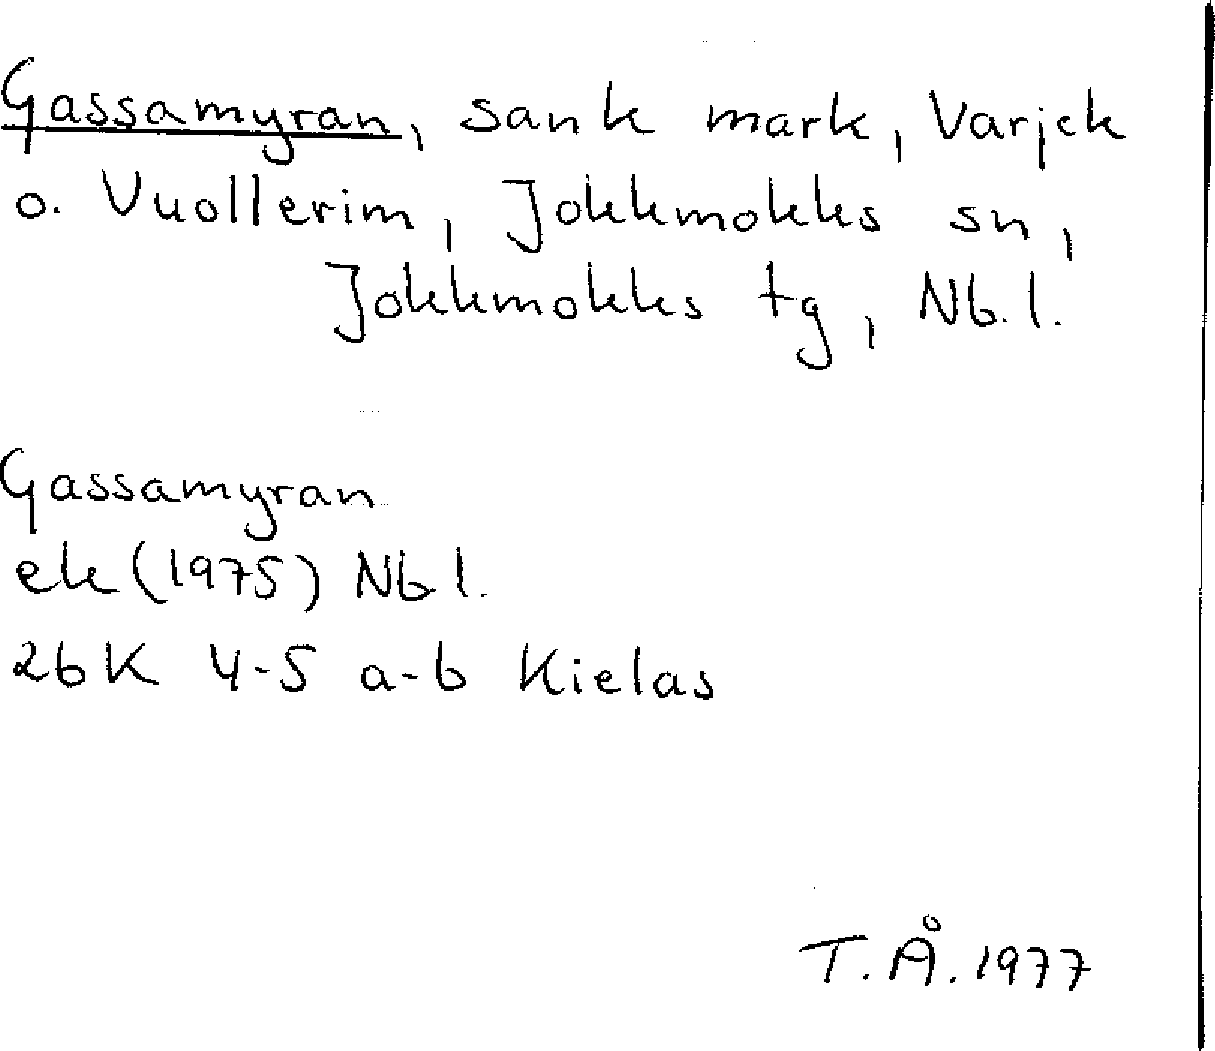 Gassamyran, sank mark, Varjek
o. Vuollerim, Jokkmokks sn,
Jokkmokks tg, Nb. l.
Gassamyran
ek (1975) Nb l.
26K 4-5 a-b Kielas
T. Å. 1977